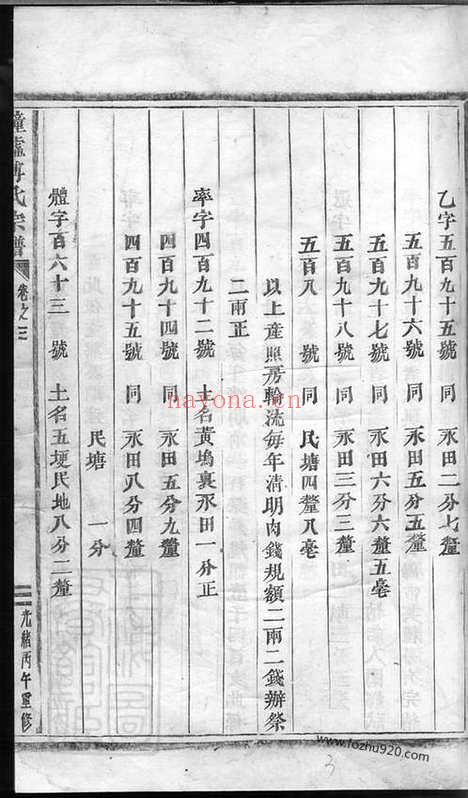 乙字五百九十五號 同 氶田二分七釐
五百九十六號 同 氶田五分五釐
五百九十七號 同 氶田六分六釐五毫
五百九十八號 同 氶田三分三釐
五百八 號 同 民塘四釐八毫
以上產照房輪流每年清明肉錢規額二兩二錢辦祭
二兩正
率字四百九十二號 土名黃塢裏氶田一分正
四百九十四號 同 氶田五分九釐
四百九十五號 同 氶田八分四釐
民塘 一分
體字百六十三號 土名五埂民地八分二釐
氏宗譜
卷之三
光緒丙午重修
hayona.cn
www.fozhu920.com
3